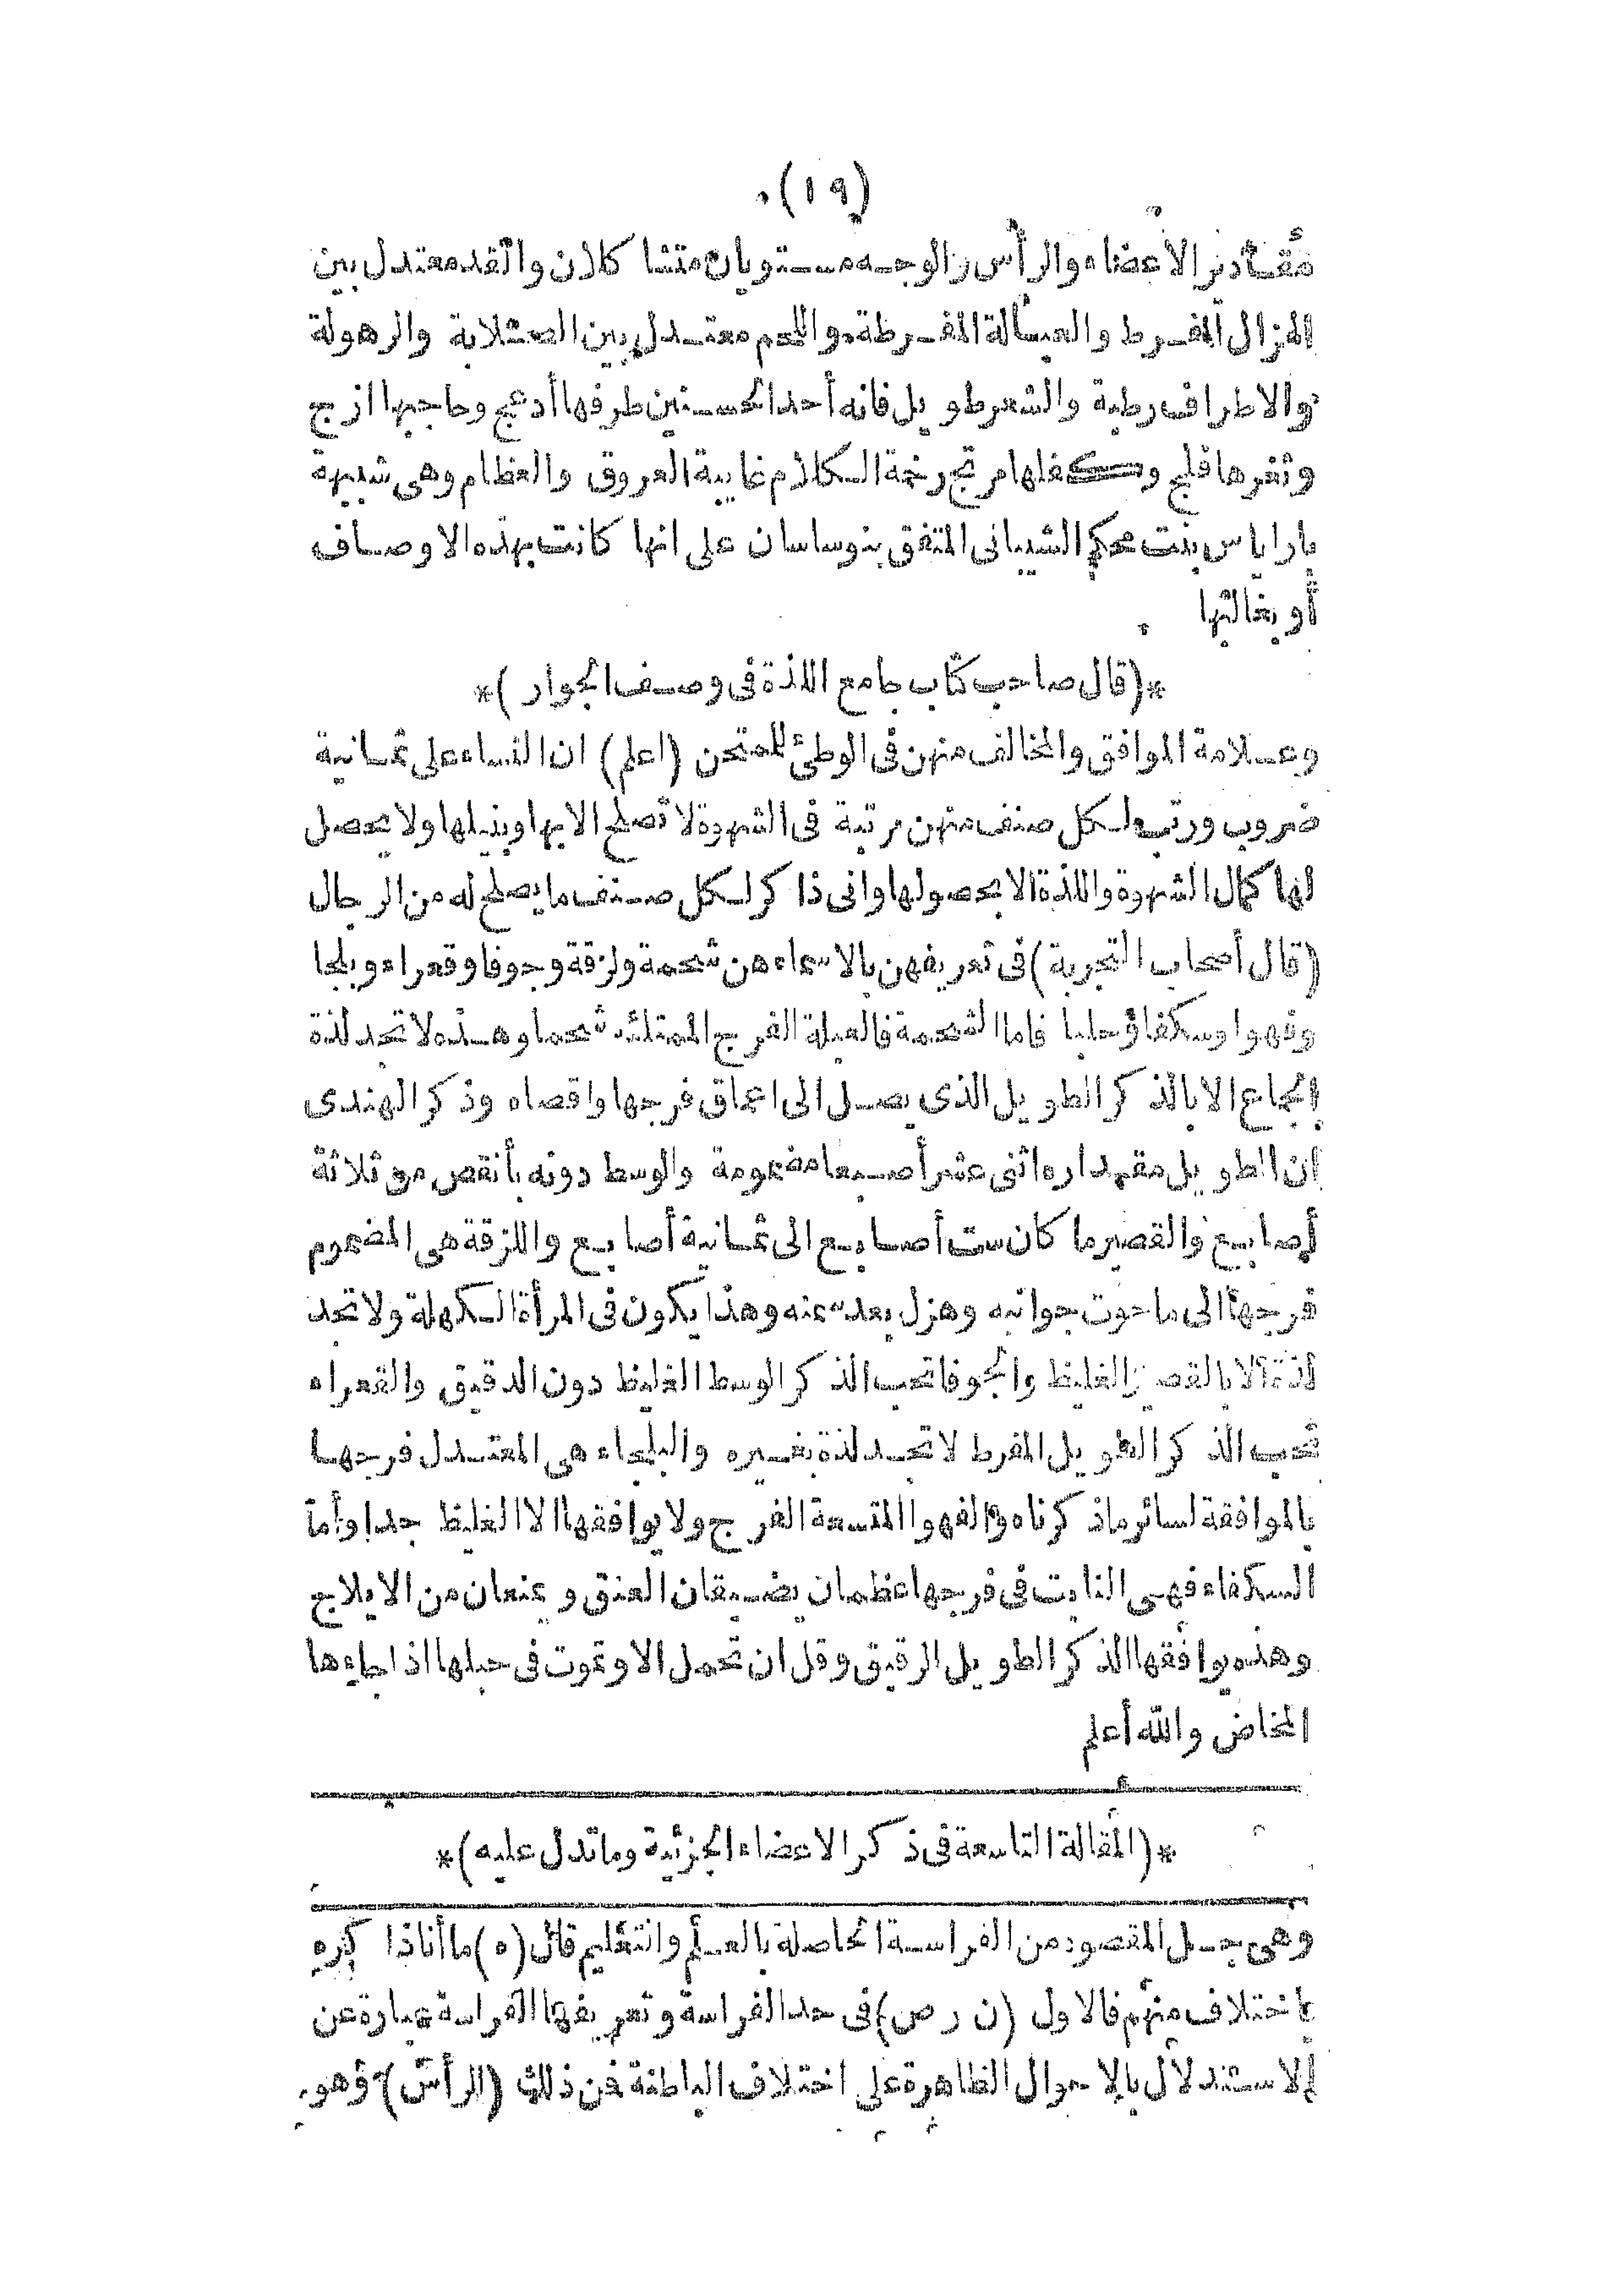 (١٩)
مقادير الاعضاء والرأس والوجه مستويان متشاكلان والقد معتدل بين
الهزال المفرط والعبالة المفرطة واللحم معتدل بين الصلابة والرهولة
والاطراف رطبة والشعر طويل فانه أحد الحسنين طرفها أدعج وحاجبها ازج
وثغرها فلج وكفلها مرتج رخمة الكلام غايبة العروق والعظام وهى شبيهة
بنت محكم الشيبانى المتفق بنو ساسان على انها كانت بهذه الاوصاف
أو بغالبها
*(قال صاحب كتاب جامع اللذة فى وصف الجوار)*
وعلامة الموافق والمخالف منهن فى الوطئ للممتحن (اعلم) ان النساء على ثمانية
ضروب ورتب لكل صنف منهن مرتبة فى الشهوة لا تصلح الا بها وبنيلها ولا يحصل
لها كمال الشهوة واللذة الا بحصولها وانى ذاكر لكل صنف ما يصلح له من الرجال
(قال أصحاب التجربة) فى تعريفهن بالاسماء هن شحمة ولزقة وجوفا وقعراء وبلجا
وفهوا وسكفا فاما الشحمة فالعبلة الفرج الممتلئه شحما وهذه لا تجد لذة
الجماع الا بالذكر الطويل الذى يصل الى اعماق فرجها واقصاه وذكر الهندى
ان الطويل مقداره اثنى عشر أصبعا مضمومة والوسط دونه بأنقص من ثلاثة
أصابيع والقصير ما كان ست أصابيع الى ثمانية أصابيع واللزقة هى المضموم
فرجها الى ما حوت جوانبه وهزل بعد سمنه وهذا يكون فى المرأة الكهلة ولا تجد
لذة الا بالقصير الغليظ والجوفا تحب الذكر الوسط الغليظ دون الدقيق والقعراء
تحب الذكر الطويل المفرط لا تجد لذة بغيره والبلجاء هى المعتدل فرجها
بالموافقة لسائر ما ذكرناه والفهوا المتسعة الفرج ولا يوافقها الا الغليظ جدا وأما
السكفاء فهى النابت فى فرجها عظمان يضيقان العنق ويمنعان من الايلاج
وهذه يوافقها الذكر الطويل الرقيق وقل ان تحمل الا وتموت فى حبلها اذا جاءها
المخاض والله أعلم
*(المقالة التاسعة فى ذكر الاعضاء الجزئية وما تدل عليه)*
وهى جل المقصود من الفراسة الحاصلة بالعلم والتعليم قال (ه) ما أنا ذاكره
باختلاف منهم فالاول (ن ر ص) فى حد الفراسة وتعريفها الفراسة عبارة عن
الاستدلال بالاحوال الظاهرة على اختلاف الباطنة فمن ذلك (الرأس) وهو